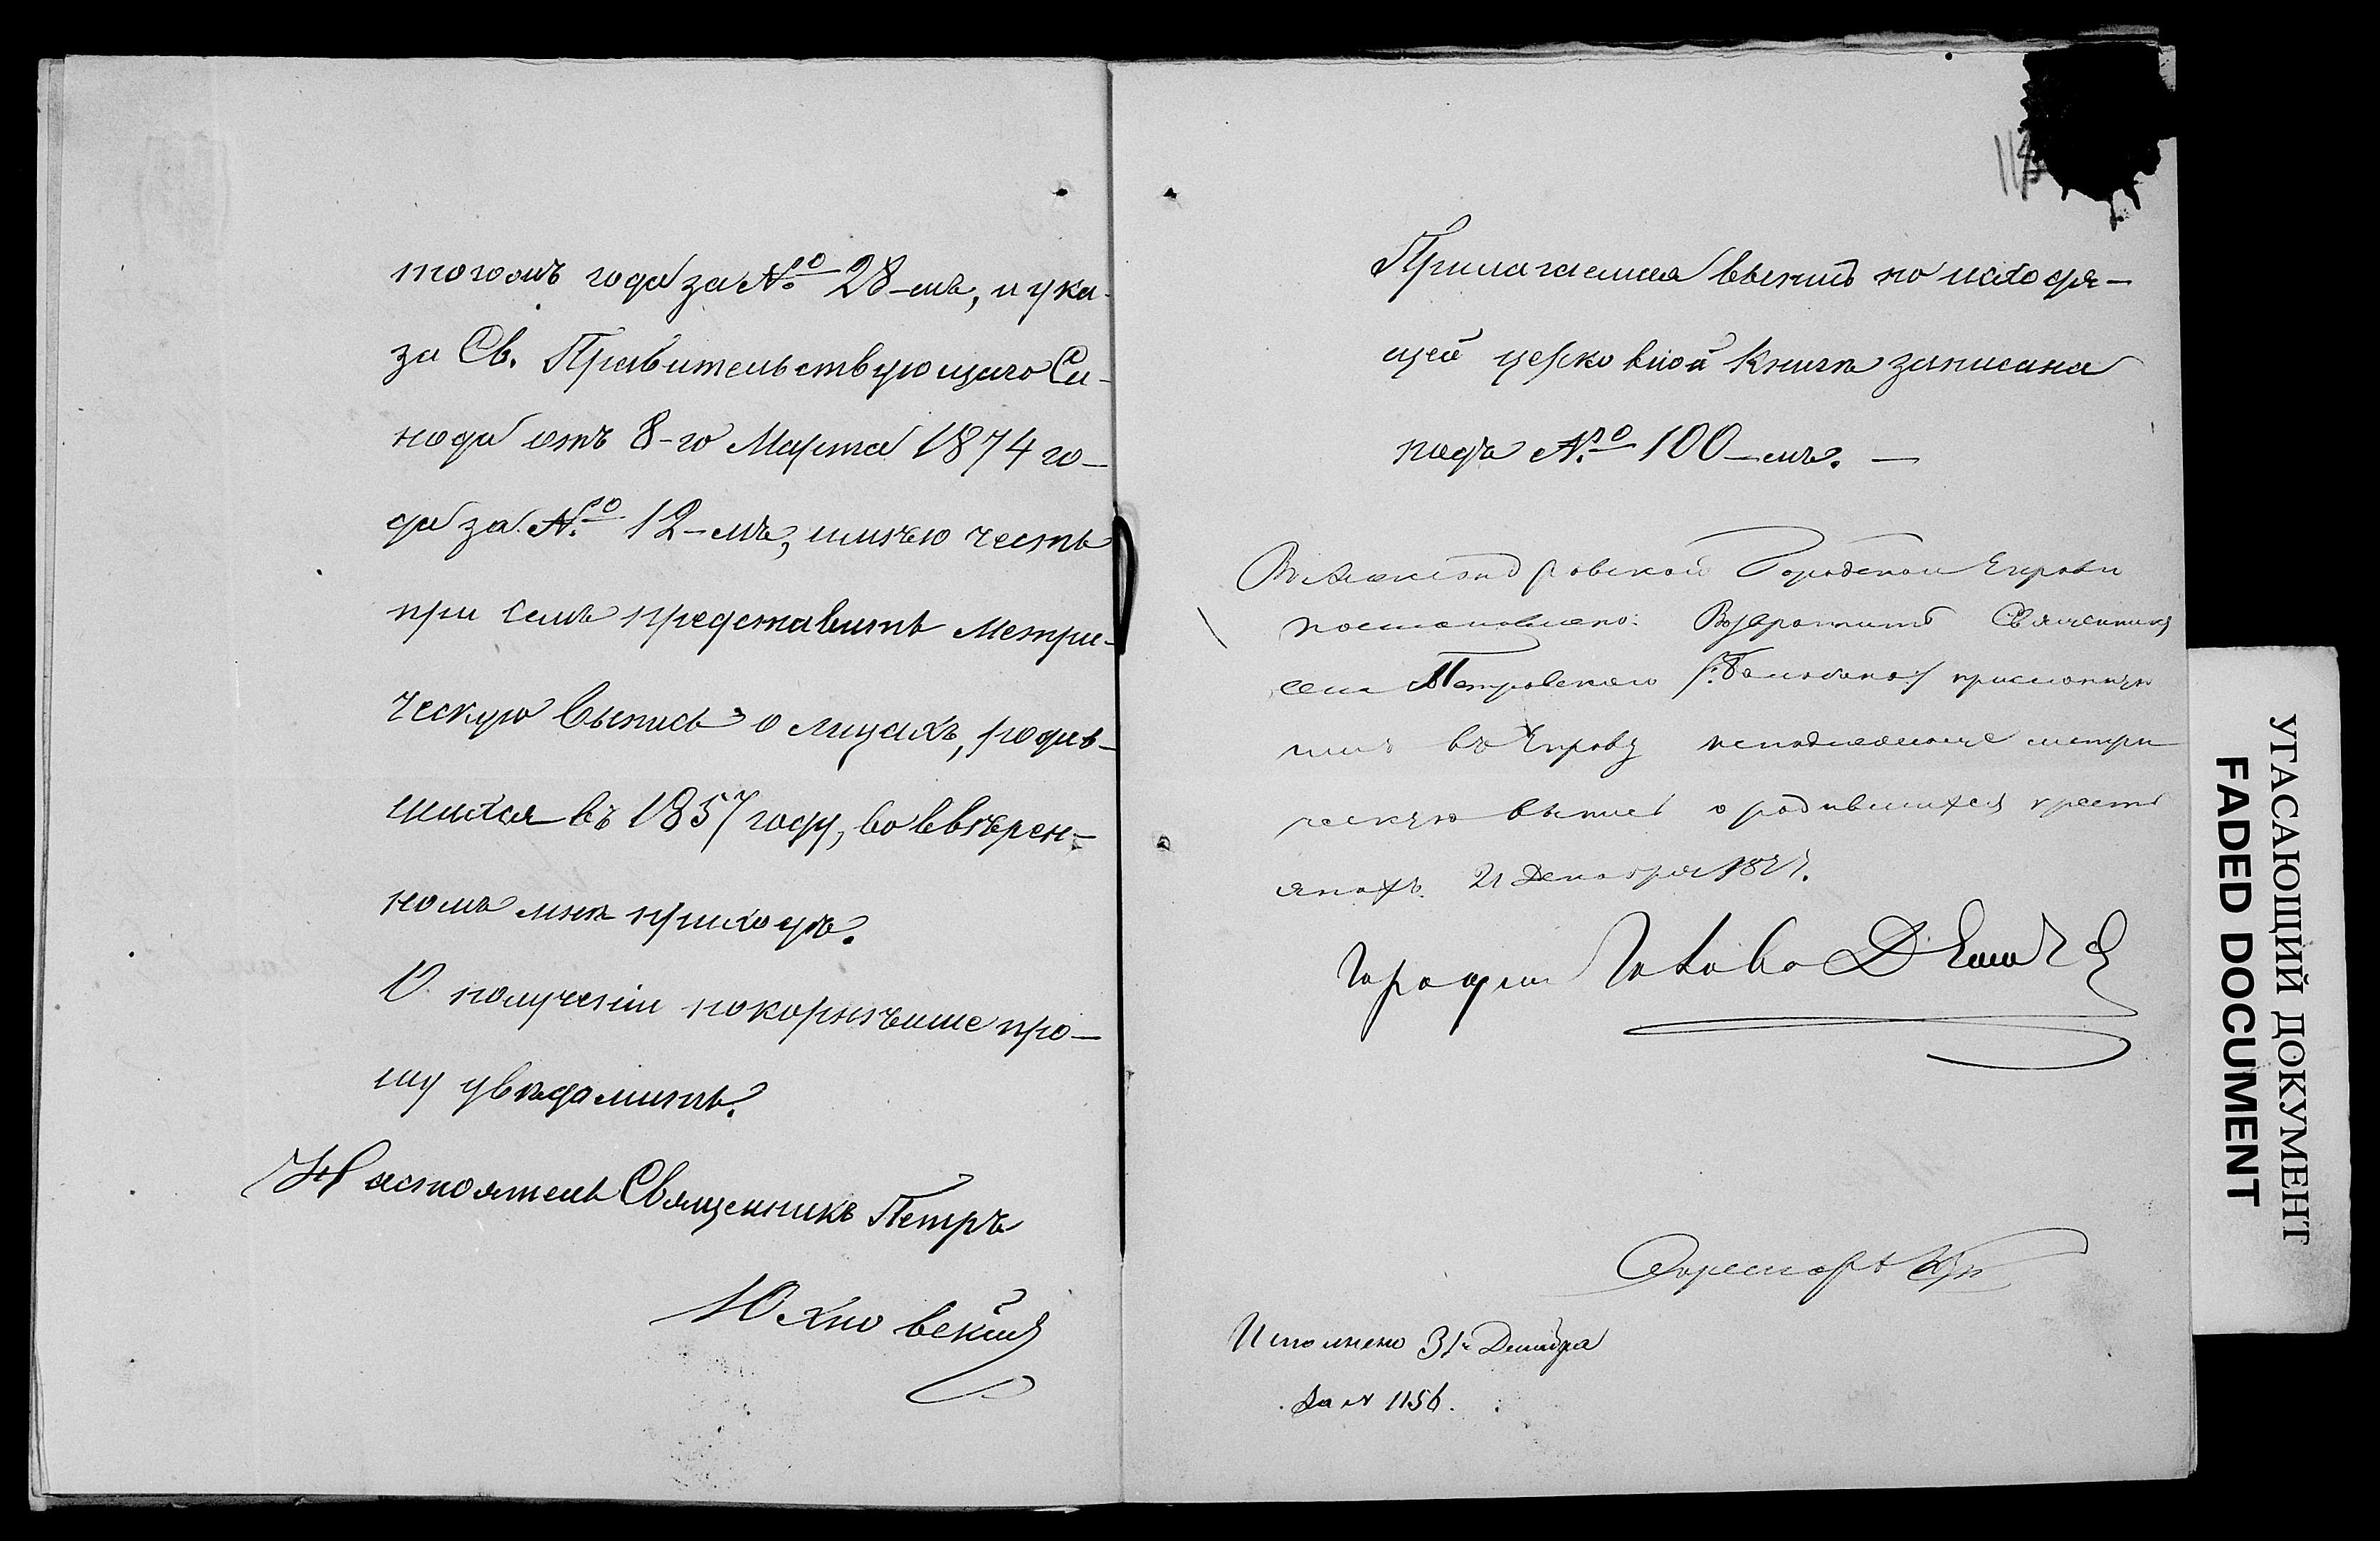 тогожъ года за №о 28-мъ, и ука-
за Св. Правительствующаго Си-
нода отъ 8-го Марта 1874 го-
да за №о 12-мъ, имѣю честь
при семъ представить Метри-
ческую выпись о лицахъ, родив-
шихся въ 1857 году, во ввѣрен-
номъ мнѣ приходѣ.
О полученіи покорнѣише про-
шу увѣдомить.
Настоятель Священникъ Петръ
Юхновскій
Прилагаемая выпись по исходя-
щей церковной книгѣ записана
подъ №о 100-мъ. —
Въ Александровской Городской Управѣ
постановлено: Возвратить Священнику
села Петровского присланную
имъ въ Управу метри
ческую выпись о родившихся кресть
янахъ. 21 Декабря 1877.
Городской Голова Д
Исполнено 31го Декабря
За N 1156.
УГАСАЮЩИЙ ДОКУМЕНТ
FADED DOCUMENT